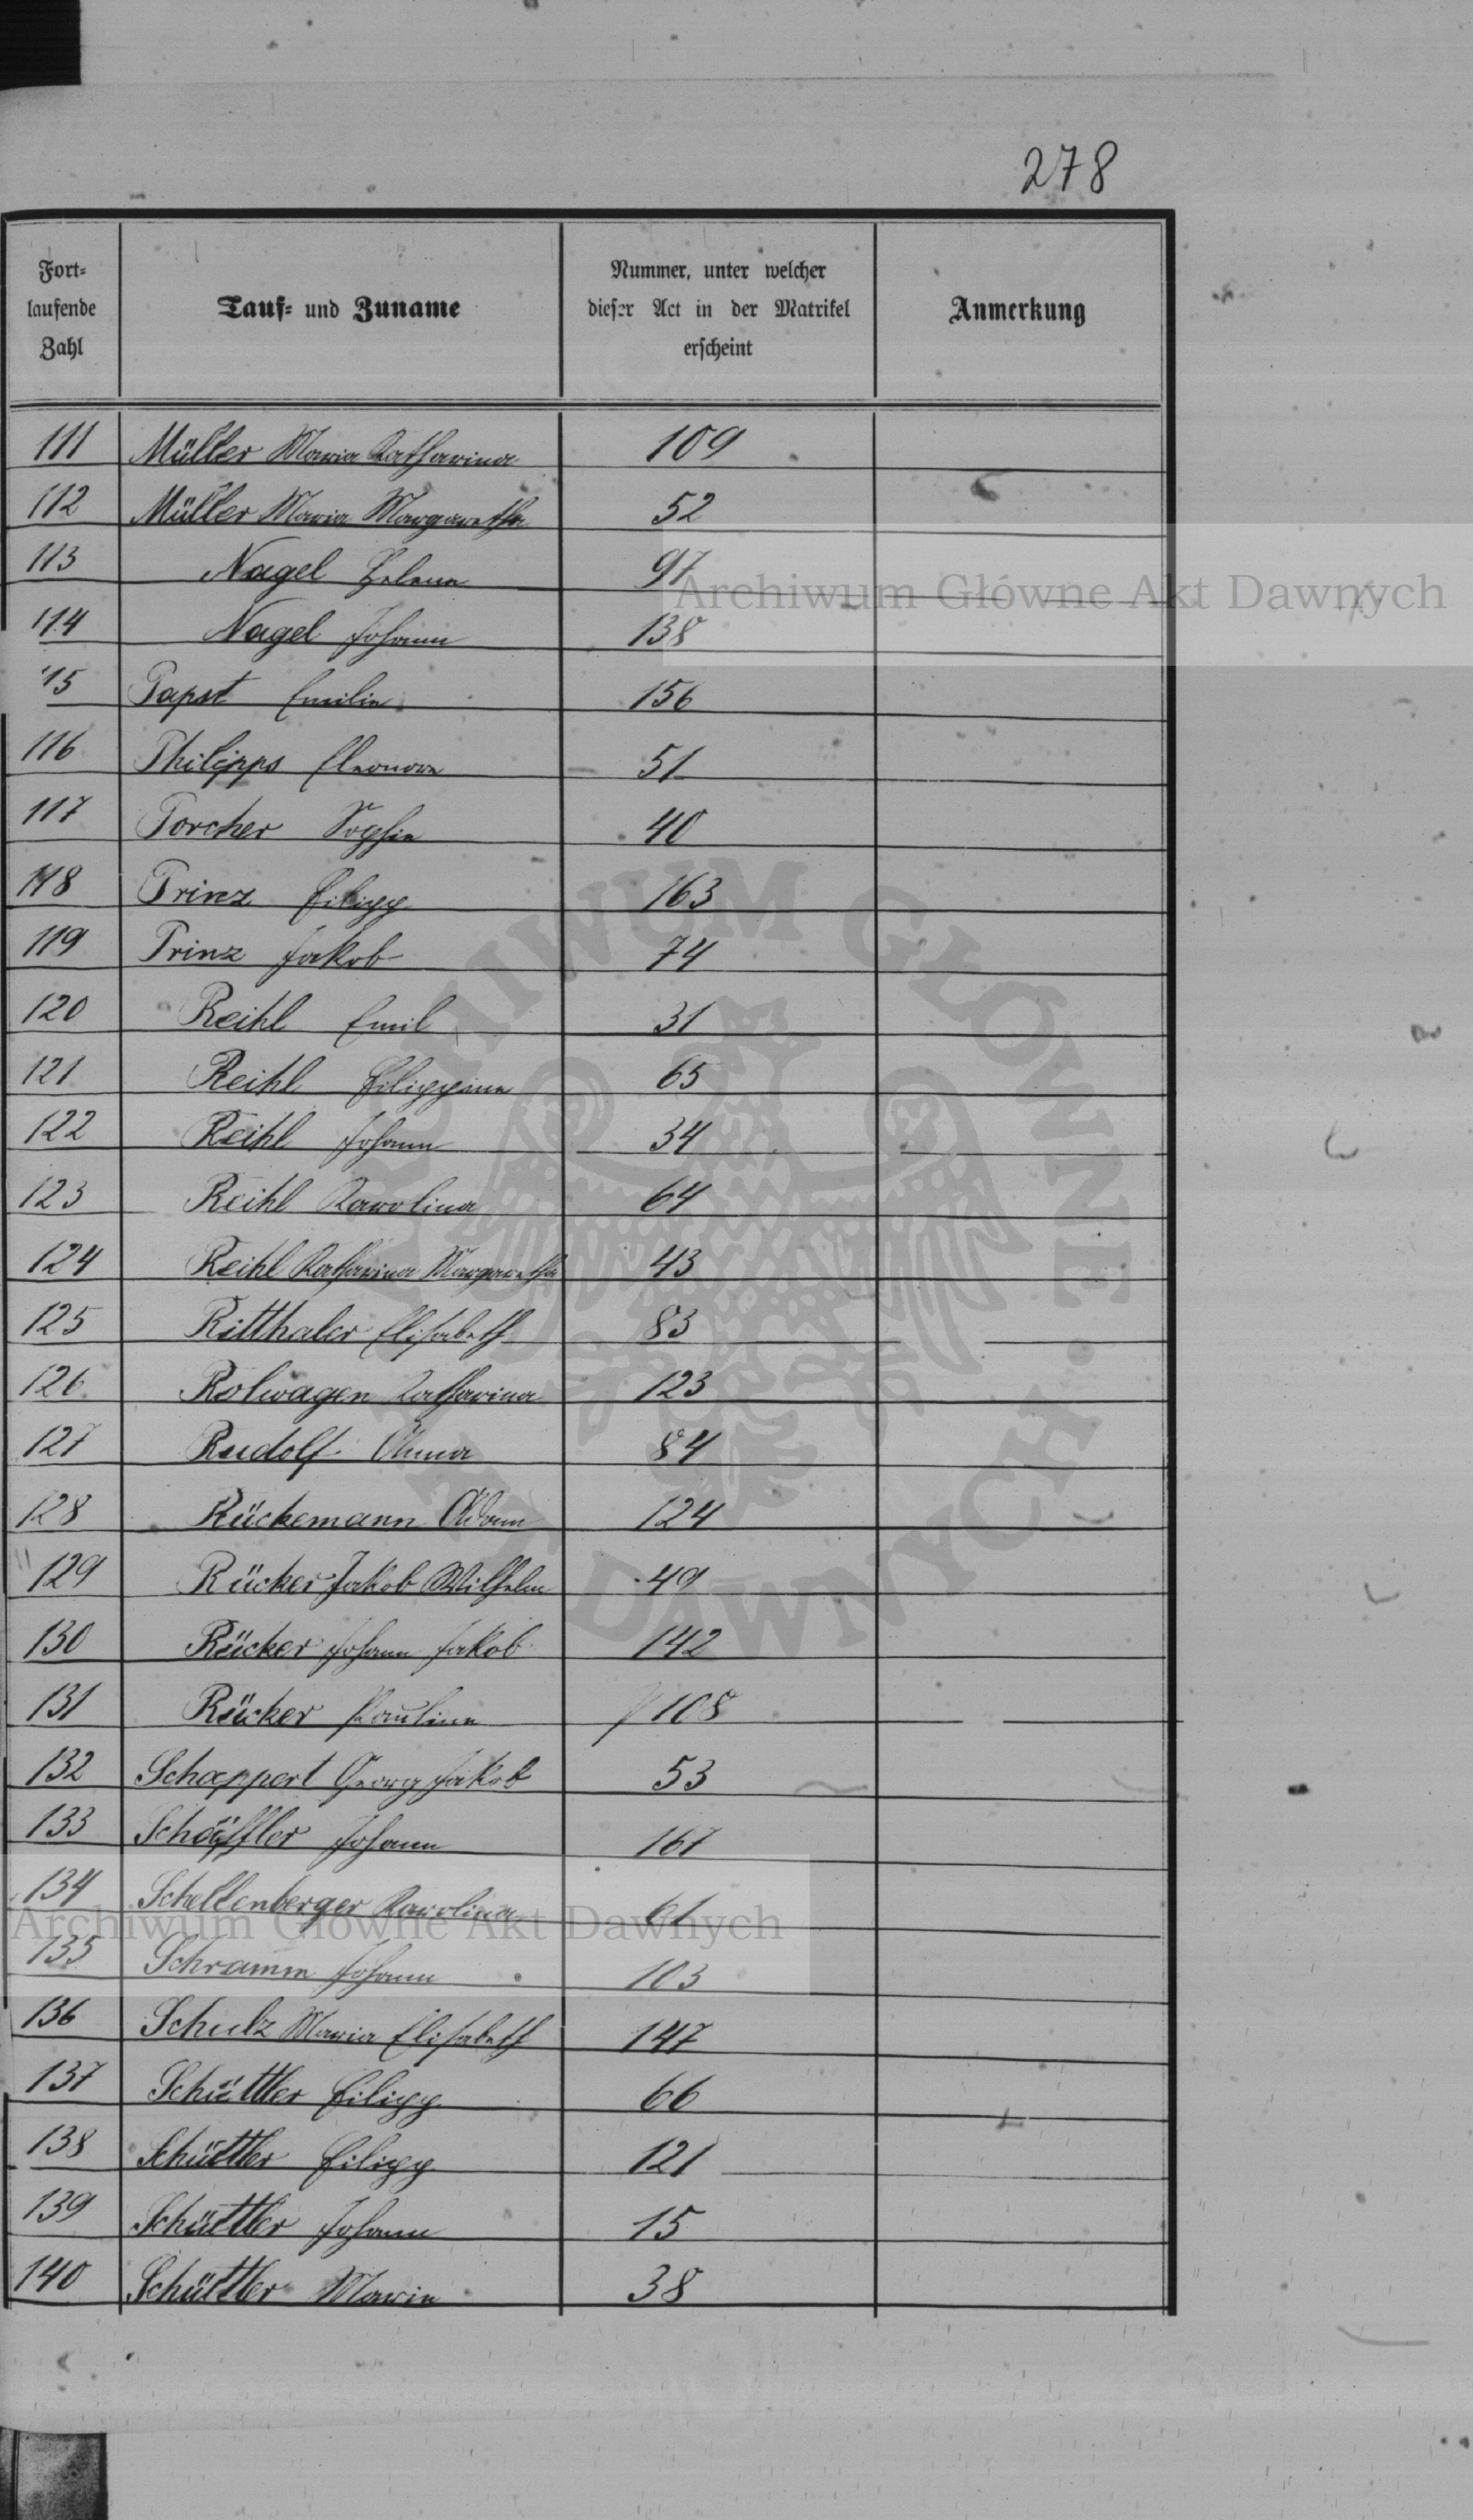 278
Fort-
laufende
Zahl
Tauf- und Zuname
Nummer, unter welcher
dieser Act in der Matrikel
erscheint
Anmerkung
111 Müller Maria Katharina 109
112 Müller Maria Margaretha 52
113 Nagel Helena 97
Archiwum Główne Akt Dawnych
114 Nagel Johann 138
115 Papst Emilie 156
116 Philipps Eleonore 51
117 Porcher Sophie 40
118 Prinz Filipp 163
119 Prinz Jakob 74
120 Reihl Emil 31
121 Reihl Filippina 65
122 Reihl Johann 34
123 Reihl Karolina 64
124 Reihl Katharina Margaretha 43
125 Ritthaler Elisabeth 83
126 Rolwagen Katharina 123
127 Rudolf Anna 84
128 Rückemann Adam 124
129 Rücker Jakob Wilhelm 49
130 Rücker Johann Jakob 142
131 Rücker Paulina 108
132 Schappert Georg Jakob 53
133 Schäffler Johann 167
134 Schellenberger Karolina 61
Archiwum Główne Akt Dawnych
135 Schramm Johann 103
136 Schulz Maria Elisabeth 147
137 Schüttler Filipp 66
138 Schüttler Filipp 121
139 Schüttler Johann 15
140 Schüttler Maria 38
ARCHIWUM GŁÓWNE AKT DAWNYCH